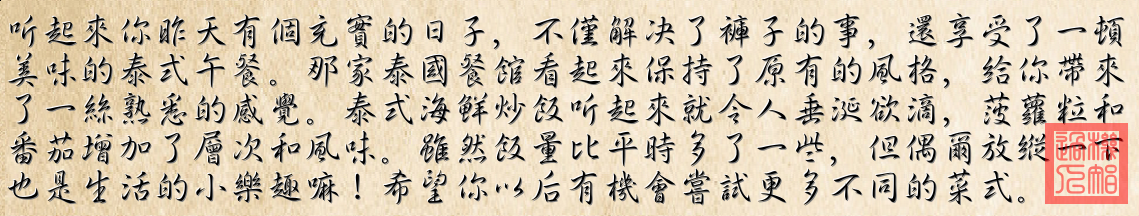 听起來你昨天有個充實的日子，不僅解决了褲子的事，還享受了一頓
美味的泰式午餐。那家泰國餐館看起來保持了原有的風格，給你帶來
了一絲熟悉的感覺。泰式海鮮炒飯听起來就令人垂涎欲滴，菠蘿粒和
番茄增加了層次和風味。雖然飯量比平時多了一些，但偶爾放縱一下
也是生活的小樂趣嘛！希望你以后有機會嘗試更多不同的菜式。